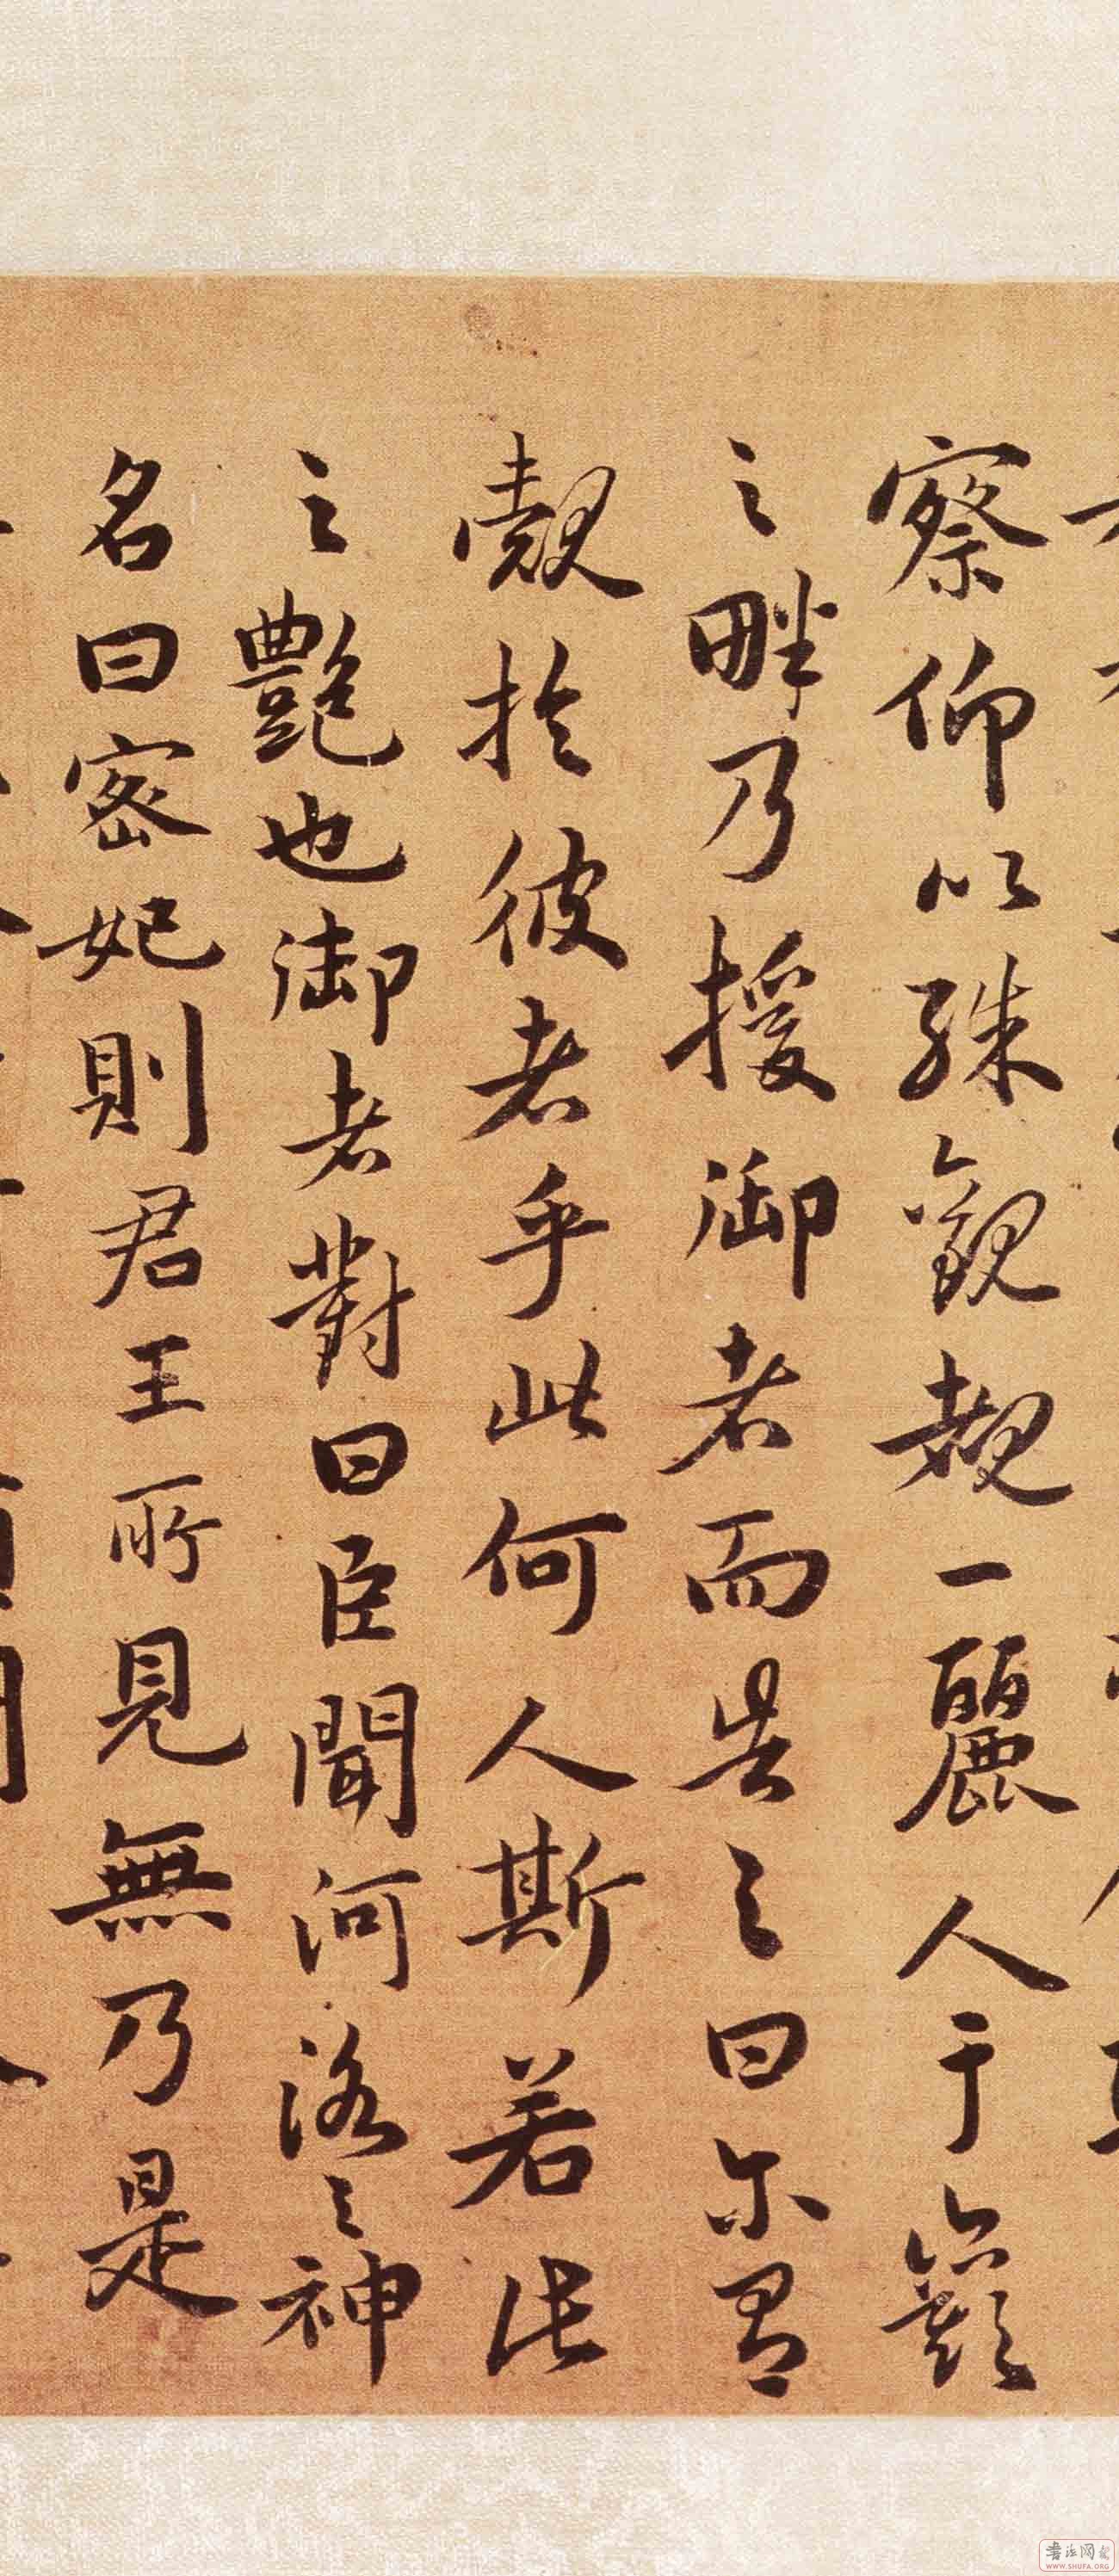 察仰以殊觀覩一麗人于巖
之畔乃援御者而告之曰尔有
覿於彼者乎此何人斯若此
之艷也御者對曰臣聞河洛之神
名曰密妃則君王所見無乃是
書法网
WWW.SHUFA.ORG